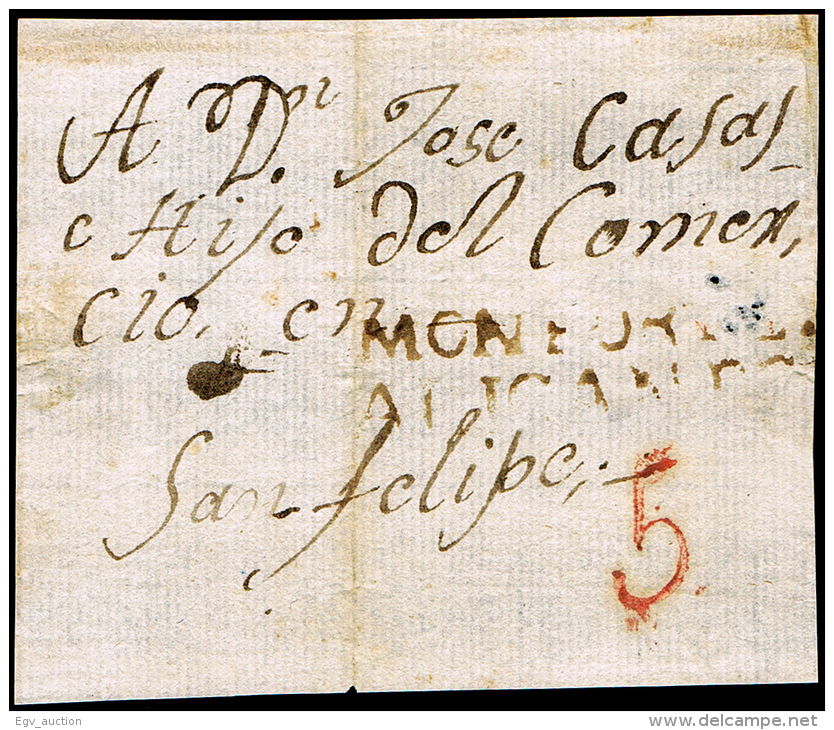 A Dn. Jose Casas
e Hijo del Comer,
cio, en
MONFORTE
ALICANTE
San felipe,
5
Egv_auction
www.delcampe.net